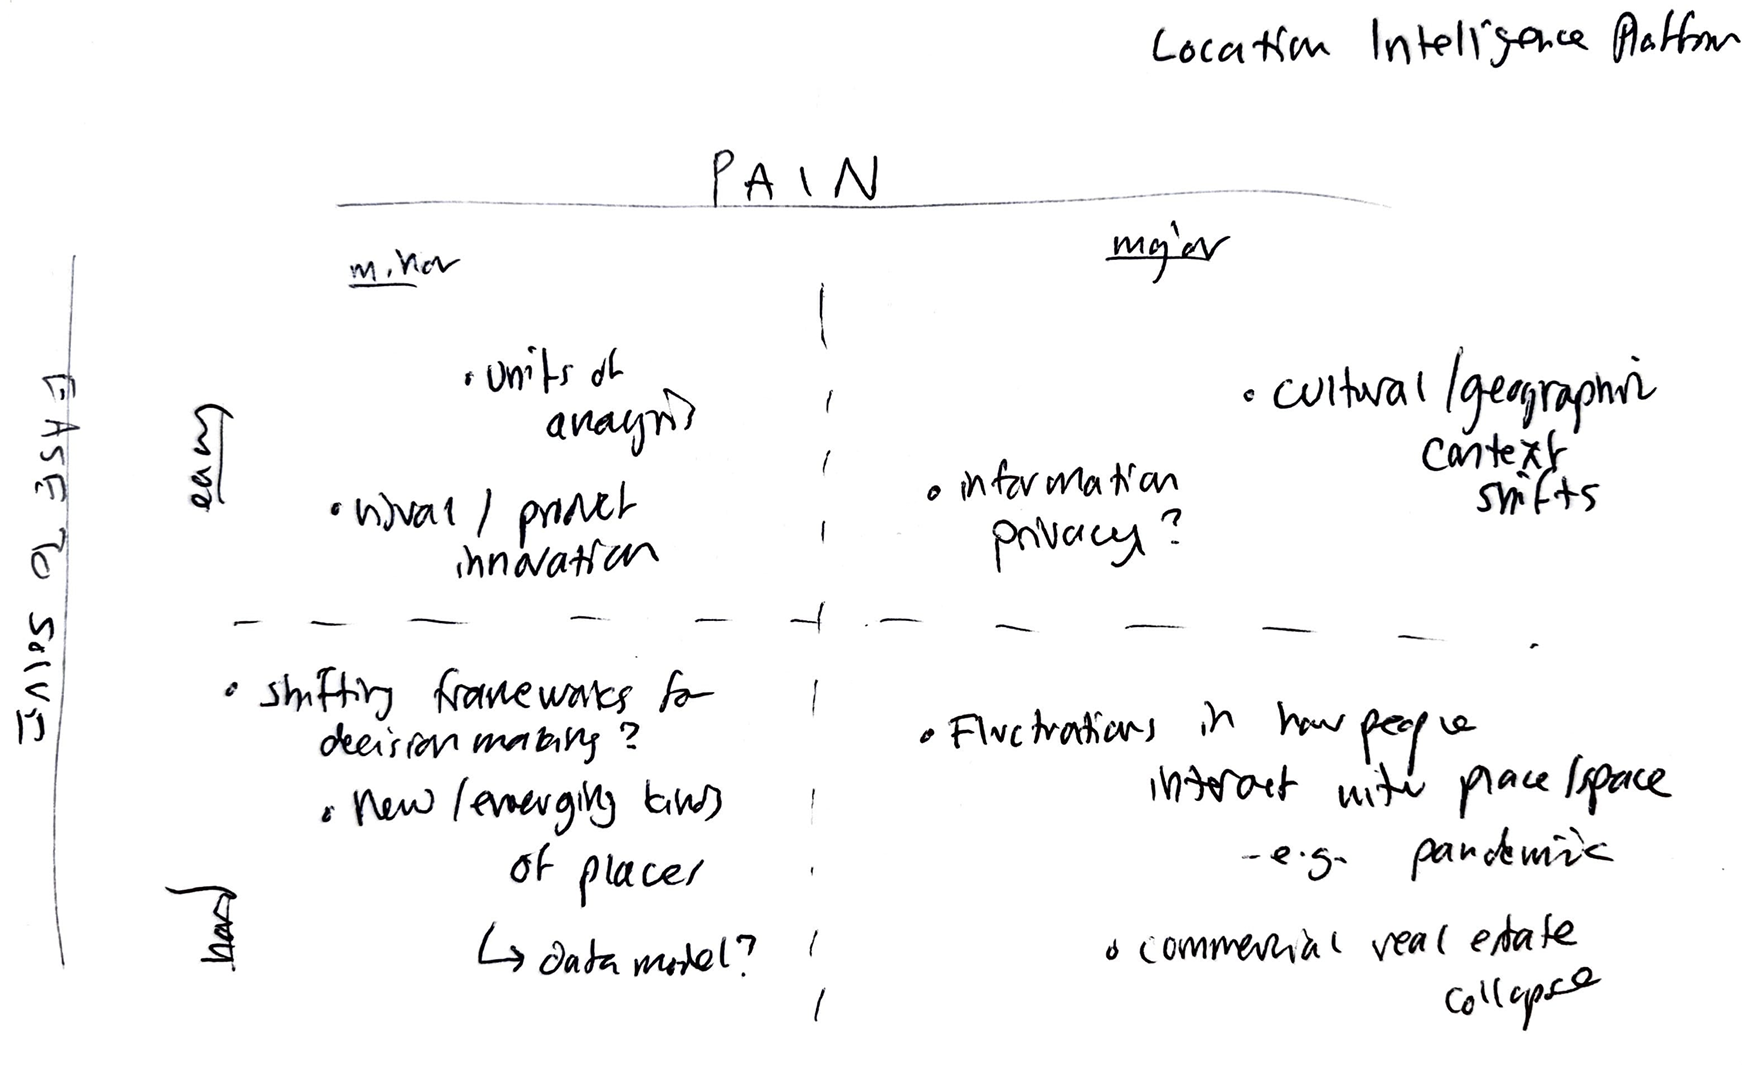 Location Intelligence Platform
PAIN
minor
major
EASE TO SOLVE
easy
• units of
analysis
• / product
innovation
• information
privacy?
• cultural/geographic
context
shifts
hard
• shifting frameworks for
decision making?
• New/emerging kinds
of places
↳ data model?
• Fluctuations in how people
interact with place/space
- e.g. pandemic
• commercial real estate
collapse